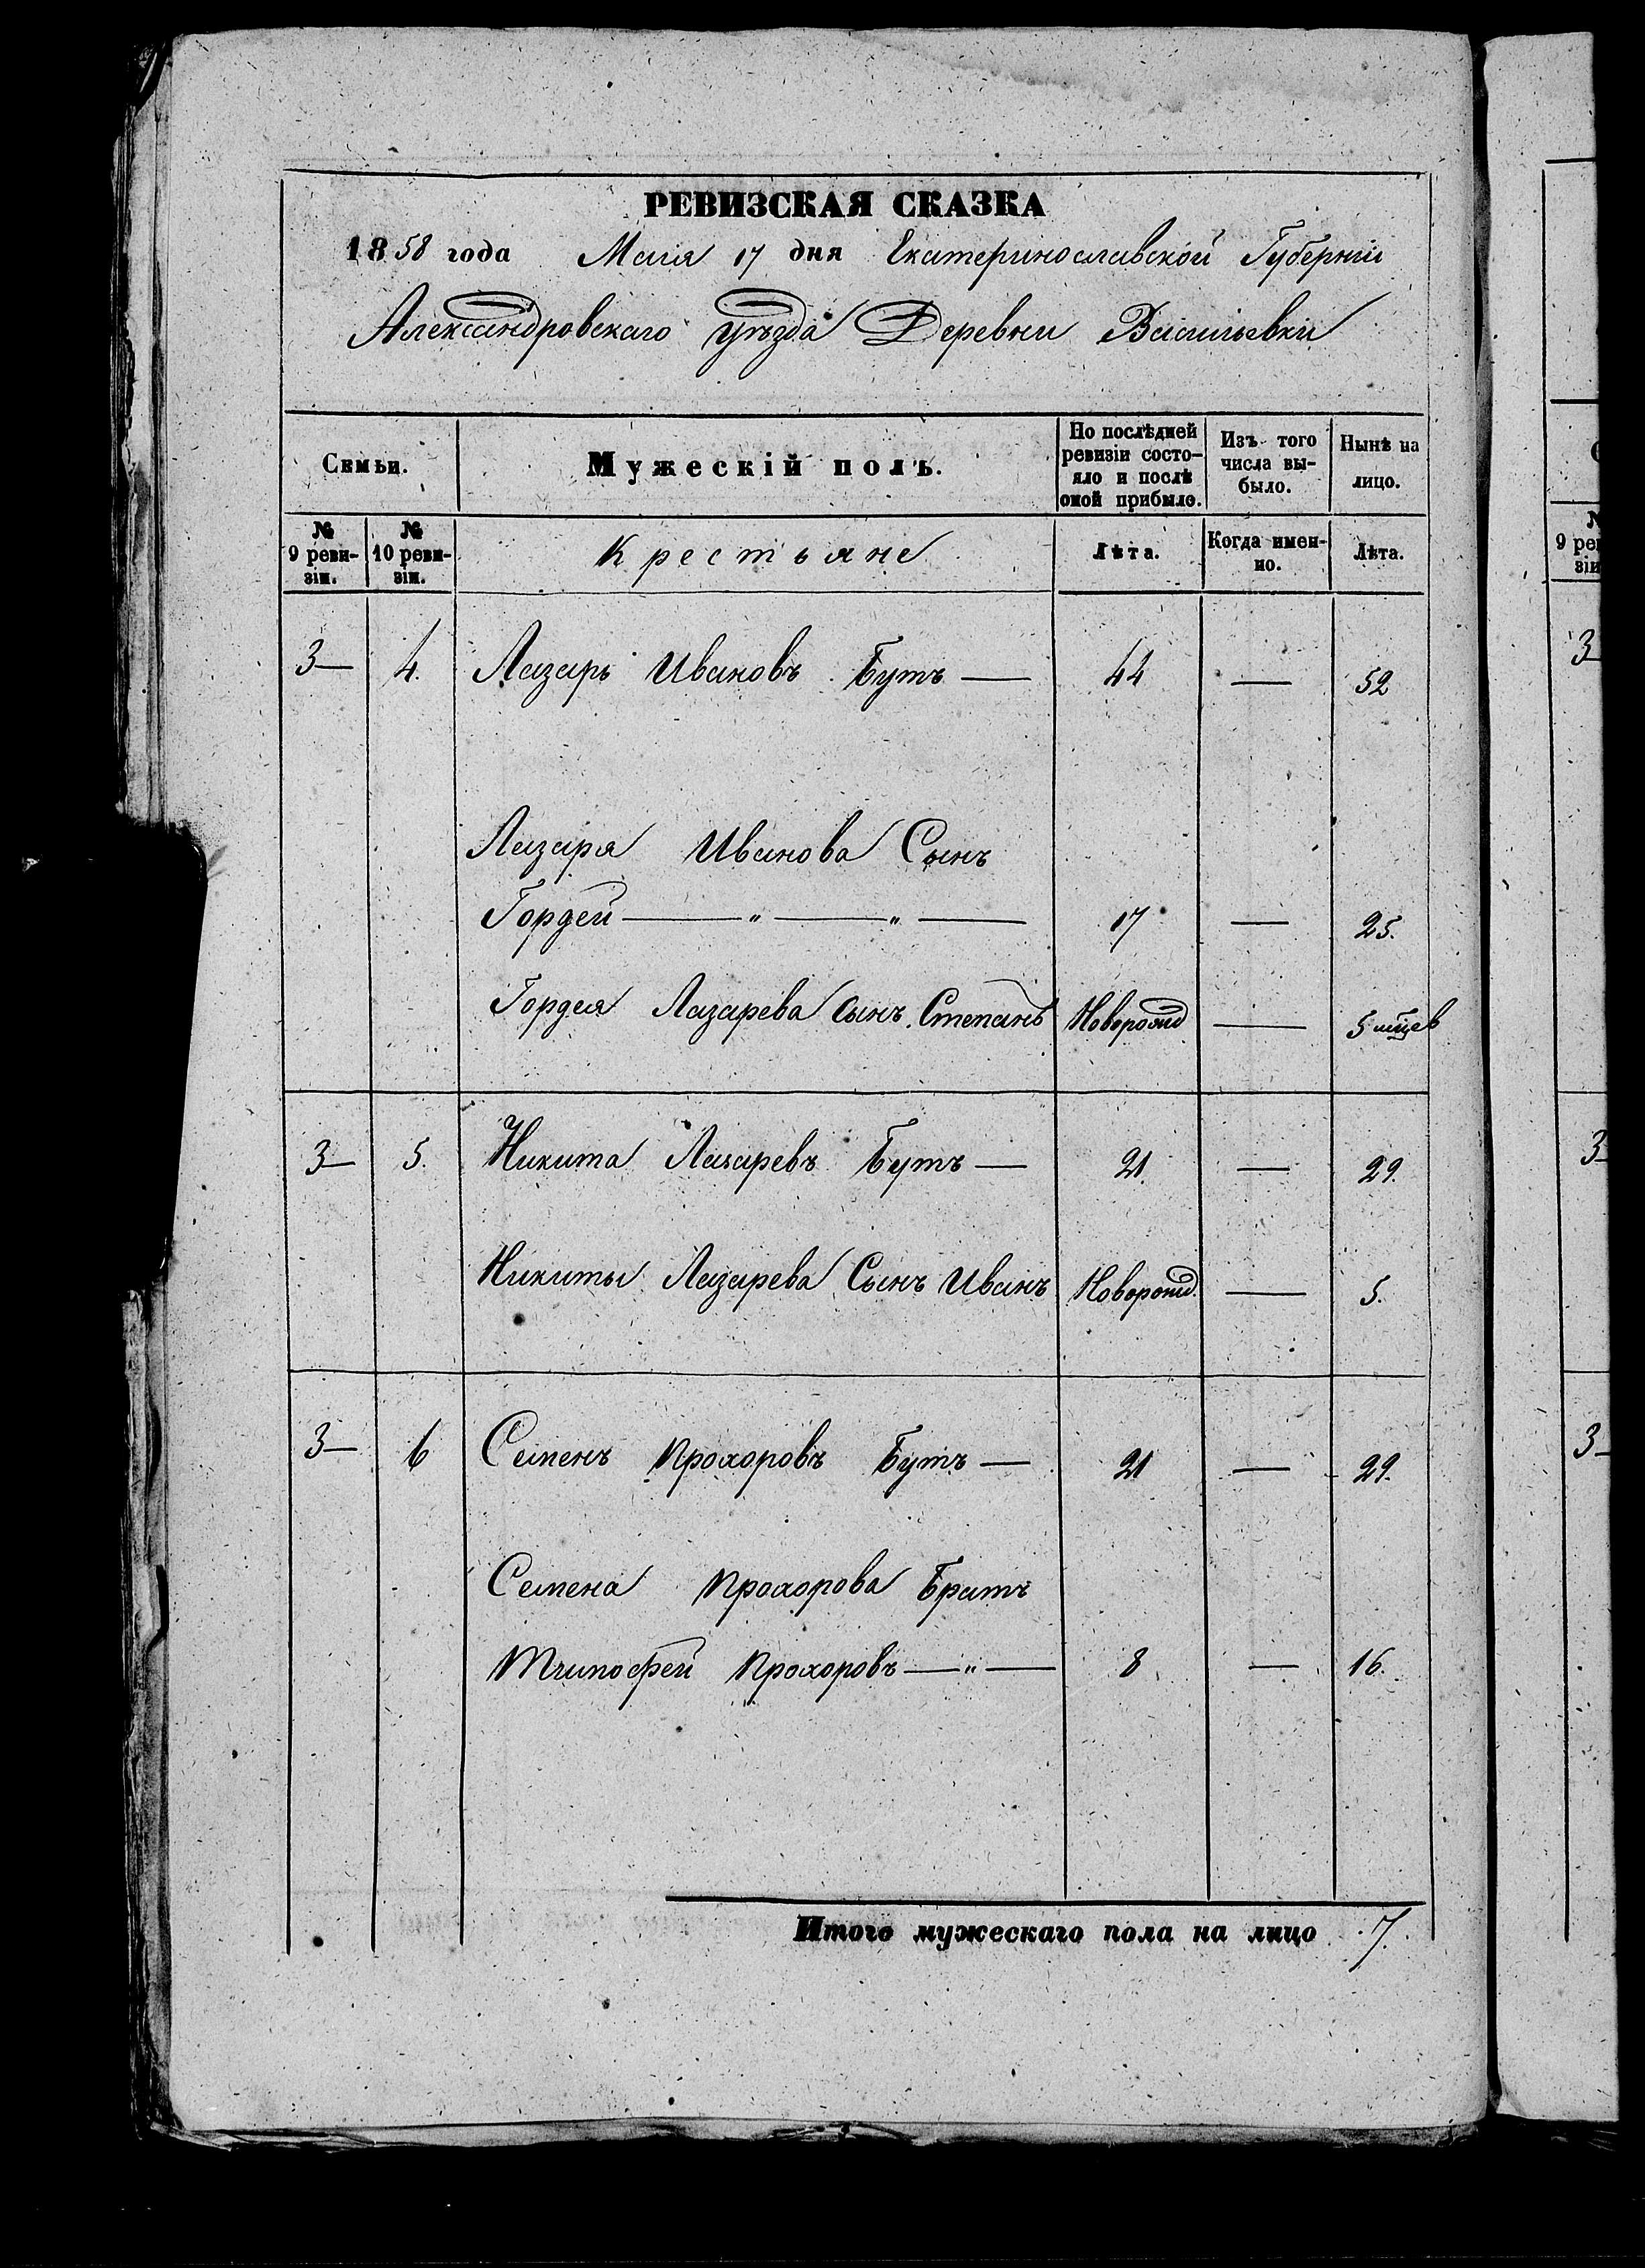 РЕВИЗСКАЯ СКАЗКА
1858 года Маія 17 дня Екатеринославской Губерніи
Александровскаго уѣзда Деревни Васильевки
Семьи. Мужескій полъ. По послѣдней ревизіи состояло и послѣ оной прибыло. Изъ того числа выбыло. Нынѣ на лицо.
№ 9 ревизіи. № 10 ревизіи. Крестьяне Лѣта. Когда именно. Лѣта.
3— 4. Лазарь Ивановъ Бутъ — 44 — 52
Лазаря Иванова Сынъ
Гордей — " — " — 17 — 25.
Гордея Лазарева сынъ Степанъ Новорожд — 5 мцев
3— 5. Никита Лазаревъ Бутъ — 21. — 29.
Никиты Лазарева Сынъ Иванъ Новорожд. — 5.
3— 6 Семенъ Прохоровъ Бутъ — 21 — 29.
Семена Прохорова Братъ
Тимофей Прохоровъ — " — 8. — 16.
Итого мужескаго пола на лицо 7.
№
9 ре
зіи
3
3
3